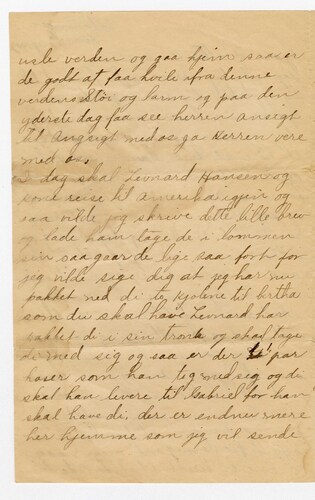 usle verden og gaa hjem saa er
de godt at faa hvile ifra denne
verdens Stöi og larm og paa den
yderste dag faa see herren ansigt
til angsigt med os ja herren vere
med os.
I dag skal Leonard Hansen og
kone reise til Amerika igjen og
saa vilde jeg skrive dette lille brev
og lade ham tage de i lommen
sin saa gaar de lige saa fort for
jeg vilde sige dig at jeg har nu
pakket ned di to kjolene til
som du skal have Leonard har
pakket di i sin tronk og skal tage
di med sig og saa er der 1 par
hoser som han tog med sig og di
skal han levere til Gabriel for han
skal have di, der er endnu mere
her hjemme som jeg vil sende